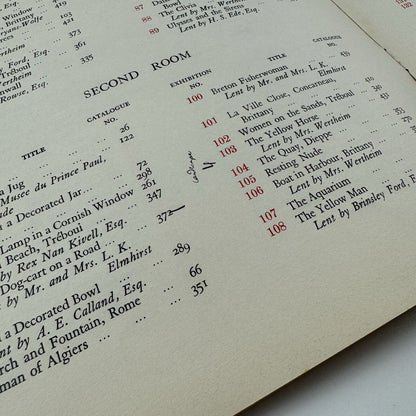 419
Brittany
203
Bryans-Wolfe
Wertheim
361
Ford, Esq.
, Tréboul
335
nwall
Rouse, Esq.
87
88 The Clivia
Lent by Mrs. Wertheim
89 Ulysses and the Sirens
Lent by H. S. Ede, Esq.
SECOND ROOM
TITLE
CATALOGUE NO.
26
122
a Jug
Musée du Prince Paul,
72
n a Decorated Jar
298
Lamp in a Cornish Window
261
Beach, Tréboul
347
by Rex Nan Kivell, Esq.
Dog-cart on a Road
372
by Mr. and Mrs. L. K. Elmhirst
289
n a Decorated Bowl
66
nt by A. E. Calland, Esq.
351
rch and Fountain, Rome
man of Algiers
EXHIBITION NO.
TITLE
CATALOGUE
100 Breton Fisherwoman
Lent by Mr. and Mrs. L. K. Elmhirst
101 La Ville Close, Concarneau, Brittany
102 Women on the Sands, Tréboul
103 The Yellow Horse
Lent by Mrs. Wertheim
104 The Quay, Dieppe
105 Resting Nude
106 Boat in Harbour, Brittany
Lent by Mrs. Wertheim
107 The Aquarium
108 The Yellow Man
Lent by Brinsley Ford,